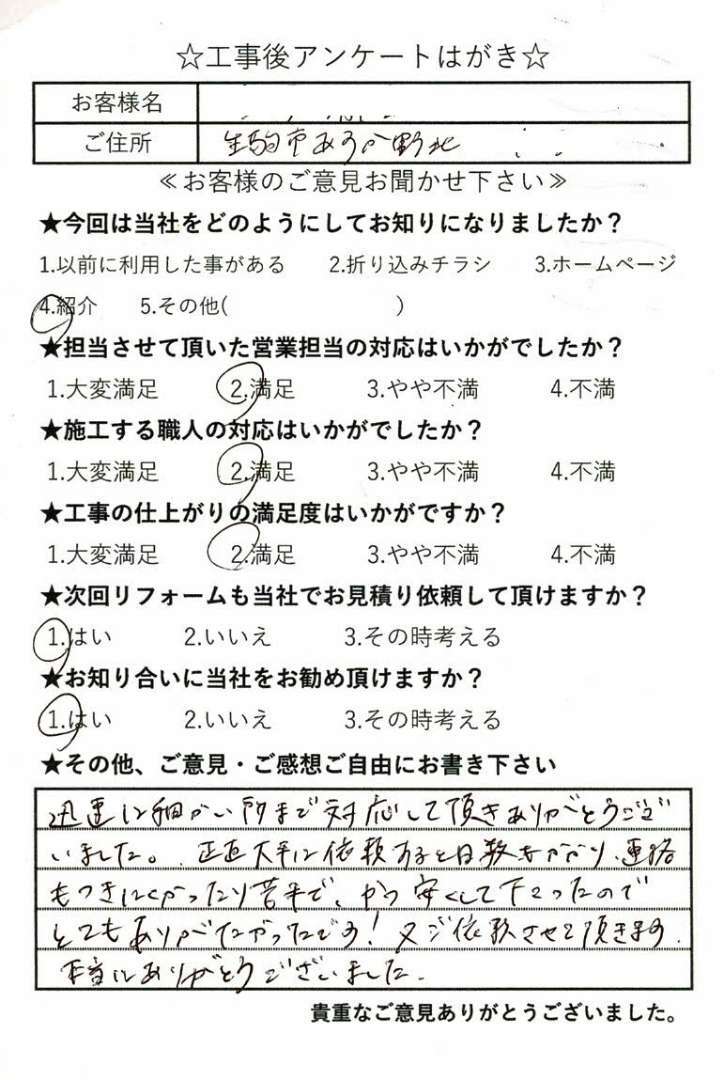 ☆工事後アンケートはがき☆
お客様名
ご住所 生駒市あすか野北
≪お客様のご意見お聞かせ下さい≫
★今回は当社をどのようにしてお知りになりましたか？
1.以前に利用した事がある 2.折り込みチラシ 3.ホームページ
4.紹介 5.その他( )
★担当させて頂いた営業担当の対応はいかがでしたか？
1.大変満足 2.満足 3.やや不満 4.不満
★施工する職人の対応はいかがでしたか？
1.大変満足 2.満足 3.やや不満 4.不満
★工事の仕上がりの満足度はいかがですか？
1.大変満足 2.満足 3.やや不満 4.不満
★次回リフォームも当社でお見積り依頼して頂けますか？
1.はい 2.いいえ 3.その時考える
★お知り合いに当社をお勧め頂けますか？
1.はい 2.いいえ 3.その時考える
★その他、ご意見・ご感想ご自由にお書き下さい
迅速に細かい所まで対応して頂きありがとうござ
いました。正直大手に依頼すると日数もかかり、連絡
もつきにくかったり苦手で、かつ安くして下さったので
とてもありがたかったです！又ぜひ依頼させて頂きます。
本当にありがとうございました。
貴重なご意見ありがとうございました。